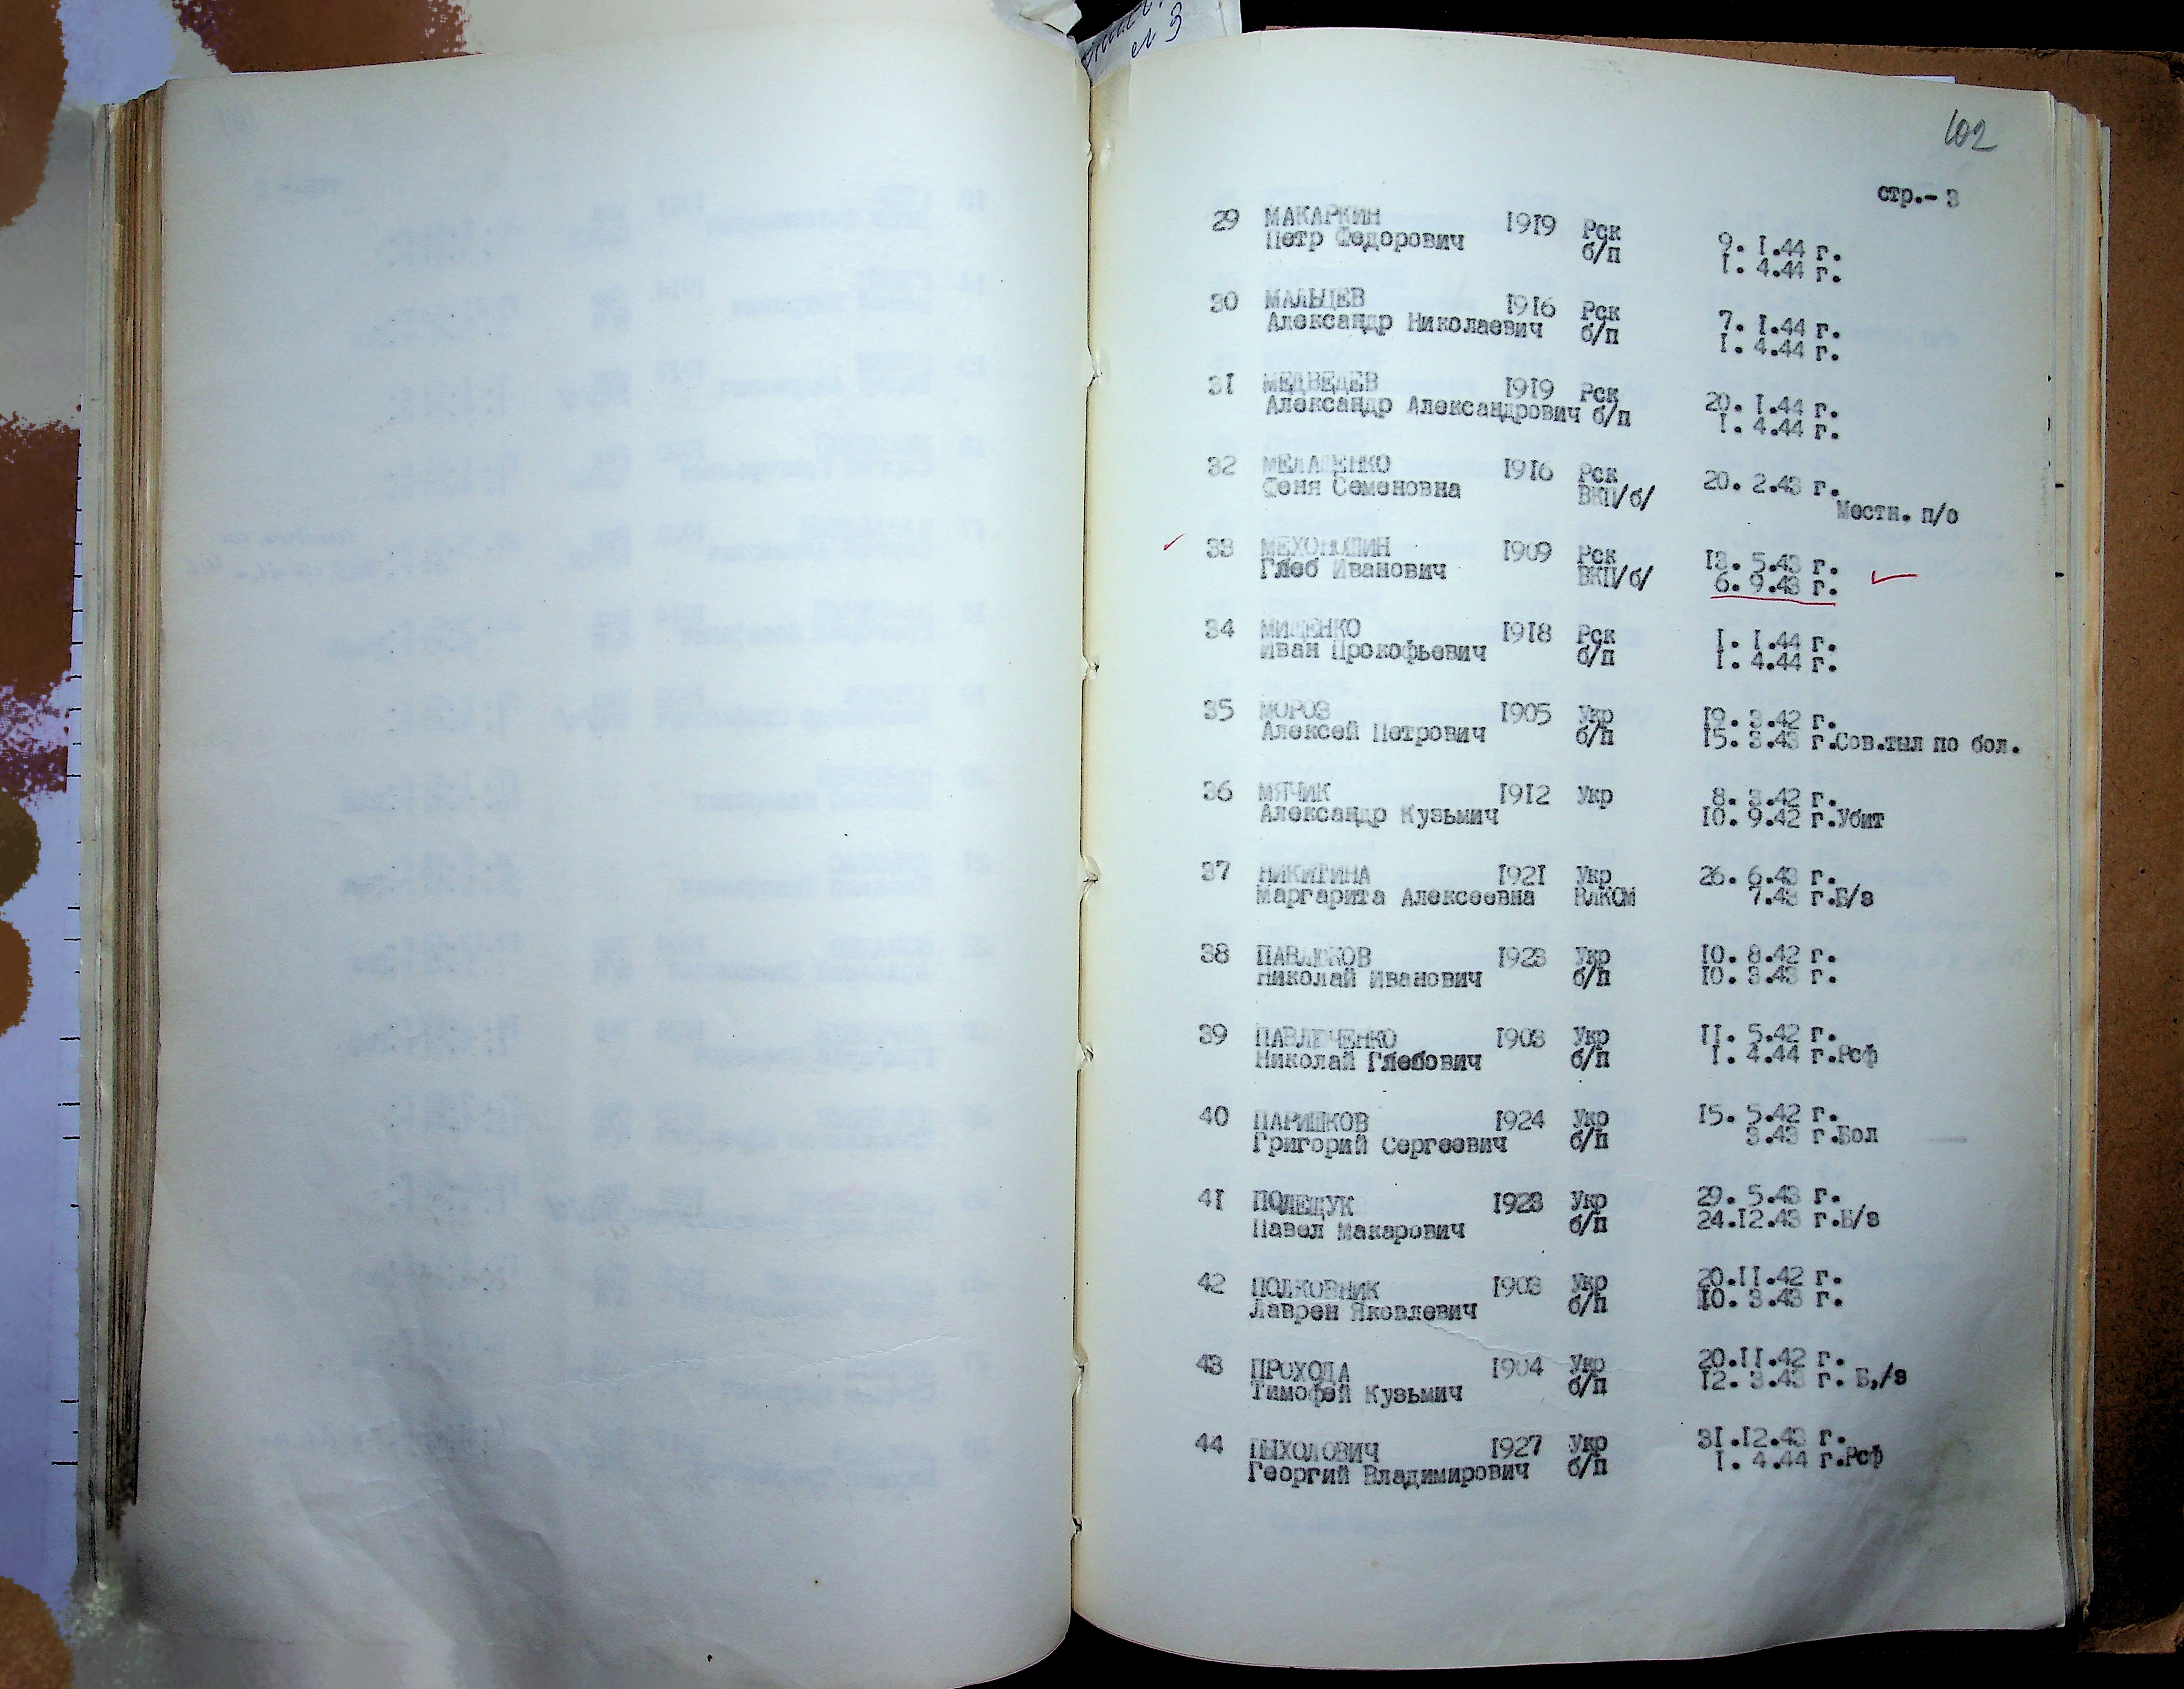 № 3
102
стр.- 3
29 МАКАРКИН 1919 Рск 9. I.44 г.
Петр Федорович б/п I. 4.44 г.
30 МАЛЬЦЕВ 1916 Рск 7. I.44 г.
Александр Николаевич б/п I. 4.44 г.
31 МЕДВЕДЕВ 1919 Рск 20. I.44 г.
Александр Александрович б/п I. 4.44 г.
32 МЕЛАЩЕНКО 1916 Рск 20. 2.43 г.
Феня Семеновна ВКП/б/ Местн. п/о
33 МЕХОНОШИН 1909 Рск 13. 5.43 г.
Глеб Иванович ВКП/б/ 6. 9.43 г.
34 МИЩЕНКО 1918 Рск I. I.44 г.
Иван Прокофьевич б/п I. 4.44 г.
35 МОРОЗ 1905 Укр 19. 3.42 г.
Алексей Петрович б/п 15. 3.43 г.Сов.тыл по бол.
36 МЯЧИК 1912 Укр 8. 3.42 г.
Александр Кузьмич 10. 9.42 г.Убит
37 НИКИТИНА 1921 Укр 26. 6.43 г.
Маргарита Алексеевна ВЛКСМ 7.43 г.Б/з
38 ПАВЛЮКОВ 1923 Укр 10. 8.42 г.
Николай Иванович б/п 10. 3.43 г.
39 ПАВЛЮЧЕНКО 1903 Укр II. 5.42 г.
Николай Глебович б/п I. 4.44 г.Рсф
40 ПАРШКОВ 1924 Укр 15. 5.42 г.
Григорий Сергеевич б/п 3.43 г.Бол
41 ПОЛЕЩУК 1923 Укр 29. 5.43 г.
Павел Макарович б/п 24.12.43 г.Б/з
42 ПОЛКОВНИК 1903 Укр 20.II.42 г.
Лаврен Яковлевич б/п 10. 3.43 г.
43 ПРОХОДА 1904 Укр 20.II.42 г.
Тимофей Кузьмич б/п 12. 3.43 г. Б,/з
44 ПЫХОЛОВИЧ 1927 Укр 31.12.43 г.
Георгий Владимирович б/п I. 4.44 г.Рсф